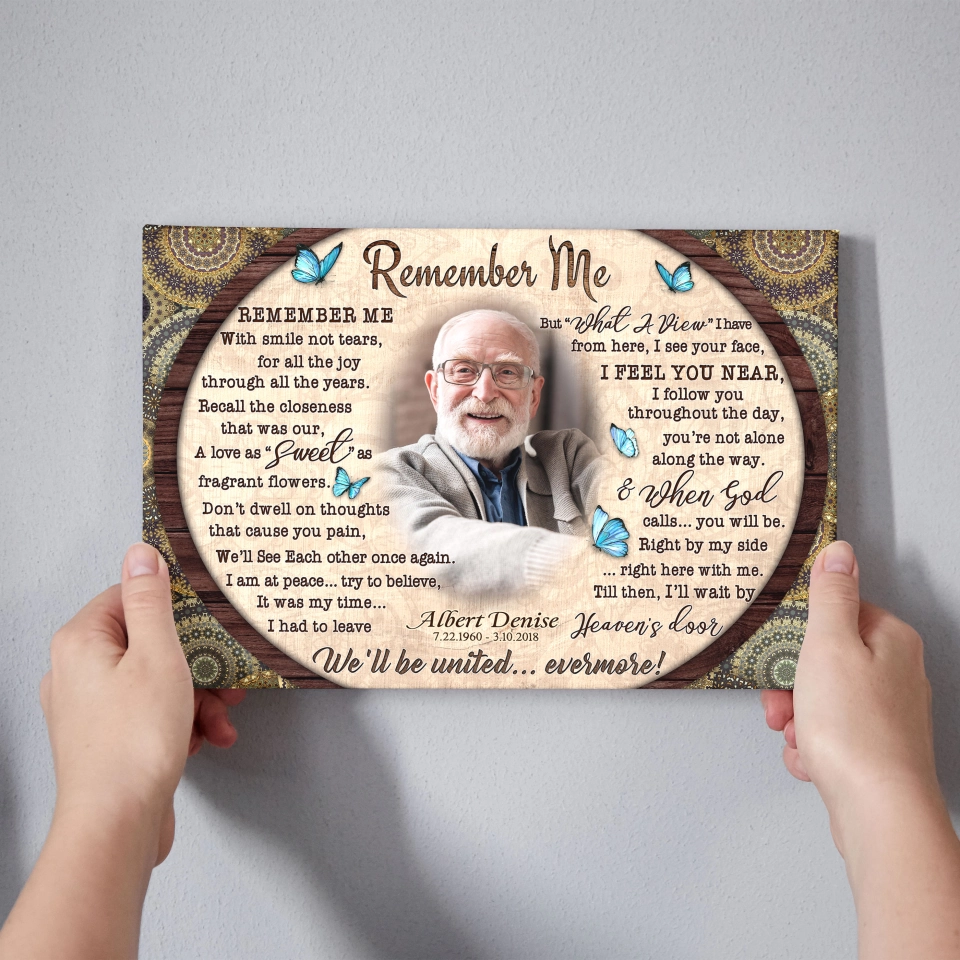 Remember Me
REMEMBER ME
With smile not tears,
for all the joy
through all the years.
Recall the closeness
that was our,
A love as "Sweet" as
fragrant flowers.
Don't dwell on thoughts
that cause you pain,
We'll See Each other once again.
I am at peace... try to believe,
It was my time...
I had to leave
But "What A View" I have
from here, I see your face,
I FEEL YOU NEAR,
I follow you
throughout the day,
you're not alone
along the way.
& When God
calls... you will be.
Right by my side
... right here with me.
Till then, I'll wait by
Heaven's door
Albert Denise
7.22.1960 - 3.10.2018
We'll be united... evermore!